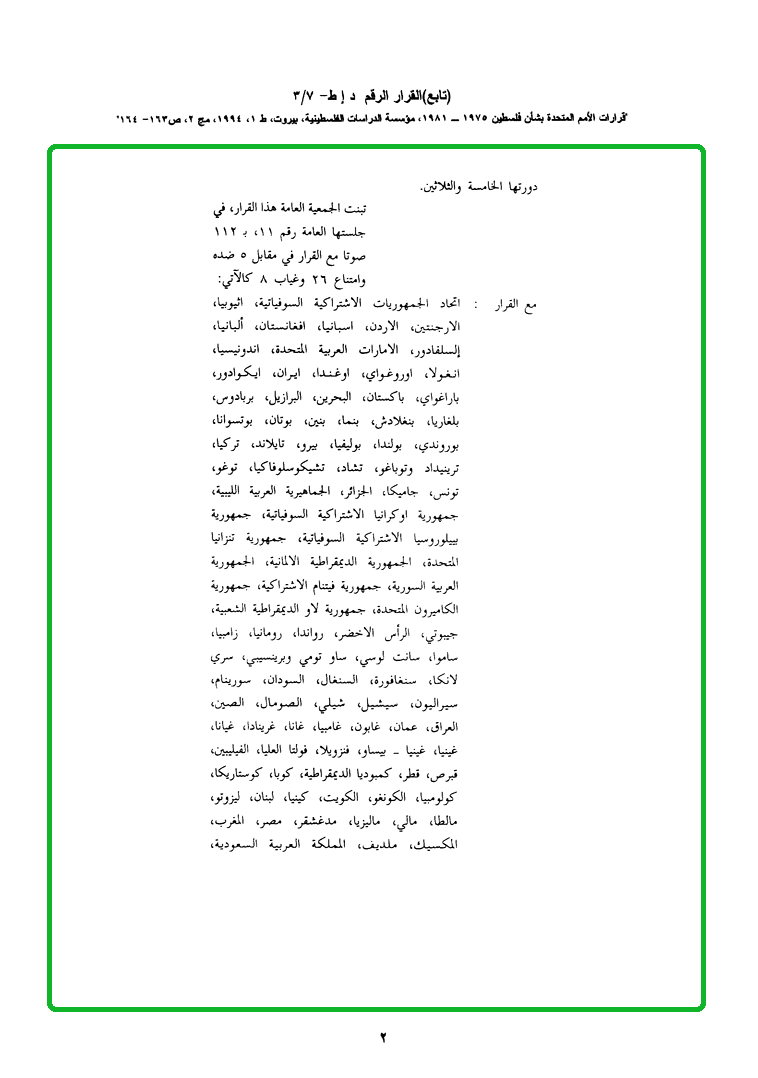 (تابع)القرار الرقم د إ ط- ٣/٧
"قرارات الأمم المتحدة بشأن فلسطين ١٩٧٥ ــ ١٩٨١، مؤسسة الدراسات الفلسطينية، بيروت، ط ١، ١٩٩٤، مج ٢، ص١٦٣- ١٦٤"
دورتها الخامسة والثلاثين.
تبنت الجمعية العامة هذا القرار، في
جلستها العامة رقم ١١، بـ ١١٢
صوتا مع القرار في مقابل ٥ ضده
وامتناع ٢٦ وغياب ٨ كالآتي:
مع القرار : اتحاد الجمهوريات الاشتراكية السوفياتية، اثيوبيا،
الارجنتين، الاردن، اسبانيا، افغانستان، ألبانيا،
إلسلفادور، الامارات العربية المتحدة، اندونيسيا،
انغولا، اوروغواي، اوغندا، ايران، ايكوادور،
باراغواي، باكستان، البحرين، البرازيل، بربادوس،
بلغاريا، بنغلادش، بنما، بنين، بوتان، بوتسوانا،
بوروندي، بولندا، بوليفيا، بيرو، تايلاند، تركيا،
ترينيداد وتوباغو، تشاد، تشيكوسلوفاكيا، توغو،
تونس، جاميكا، الجزائر، الجماهيرية العربية الليبية،
جمهورية اوكرانيا الاشتراكية السوفياتية، جمهورية
بييلوروسيا الاشتراكية السوفياتية، جمهورية تنزانيا
المتحدة، الجمهورية الديمقراطية الالمانية، الجمهورية
العربية السورية، جمهورية فيتنام الاشتراكية، جمهورية
الكاميرون المتحدة، جمهورية لاو الديمقراطية الشعبية،
جيبوتي، الرأس الاخضر، رواندا، رومانيا، زامبيا،
ساموا، سانت لوسي، ساو تومي وبرينسيبي، سري
لانكا، سنغافورة، السنغال، السودان، سورينام،
سيراليون، سيشيل، شيلي، الصومال، الصين،
العراق، عمان، غابون، غامبيا، غانا، غرينادا، غيانا،
غينيا، غينيا ـ بيساو، فنزويلا، فولتا العليا، الفيليبين،
قبرص، قطر، كمبوديا الديمقراطية، كوبا، كوستاريكا،
كولومبيا، الكونغو، الكويت، كينيا، لبنان، ليزوتو،
مالطا، مالي، ماليزيا، مدغشقر، مصر، المغرب،
المكسيك، ملديف، المملكة العربية السعودية،
٢